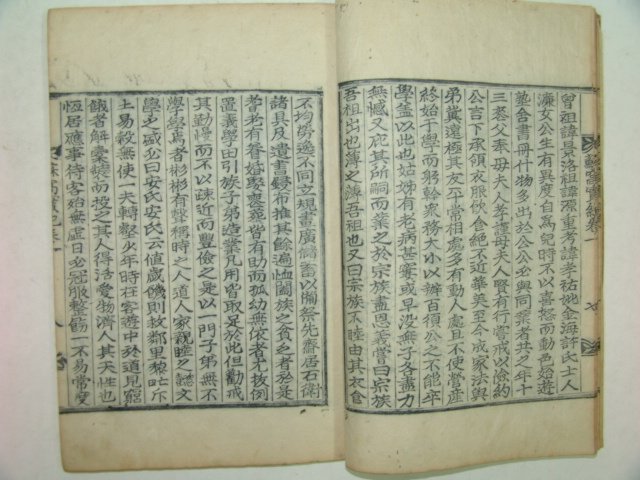 曾祖諱是洛祖諱彌重考諱孝祐妣金海許氏士人
濂女公生有異度自爲兒時不以喜怒而動色始遊
塾舍書冊什物多出於公公必與同業者共之年十
三丧父奉母夫人孝謹母夫人賢有行嘗戒以儉約
公言下承領衣服飮食絶不近華美至今成家法與
弟糞遠極其友于常相處多有動人處且不使營産
終始于學而躬幹衆務大小以辦百須公之不能卒
學盖以此也姑姊有老病甚寠或早没無子各盡力
無憾又庇其所嗣而業之於宗族盡恩義嘗曰宗族
吾祖出也薄之薄吾祖也又曰宗族不睦由其衣食
不均勞逸不同立規畫廣儲畜以備祭先齋居石衛
諸具及遺書鋟布推其餘遍恤闔族之貧乏者於是
耆老有養婚娶喪葬皆有助而孤幼無依者尤拔例
置義學田引族子弟造業凡用皆取足於此但勸戒
其勤慢而不以疎近而豐儉之是以一門子弟無不
學學焉者彬彬有聲稱時之人道人家親睦之懿文
學之盛必曰安氏安氏云値歲饑則救鄰里藜芷不
上易殺無使一夫轉壑少年時在客遊中於道見窮
餓者解橐裝而投之其人得活愛物濟人其天性也
恆居應事待客始無虚日必冠服整飭一不易常度